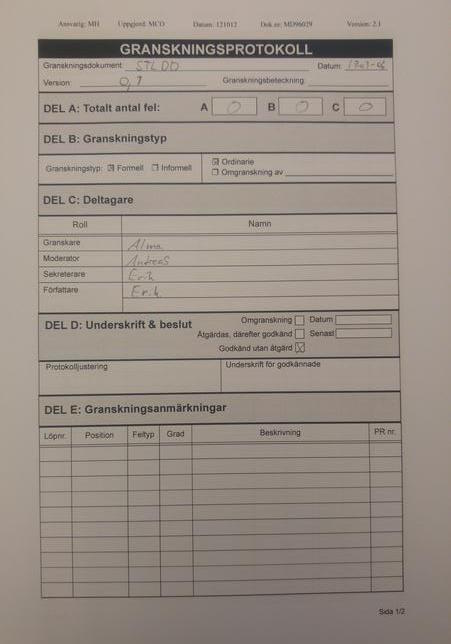 Ansvarig: MH Uppgjord: MCO Datum: 121012 Dok.nr: MD96029 Version: 2.1
GRANSKNINGSPROTOKOLL
Granskningsdokument: STLDD Datum:
Version: 0,7 Granskningsbeteckning:
DEL A: Totalt antal fel: A 0 B 0 C 0
DEL B: Granskningstyp
Granskningstyp: ☒ Formell ☐ Informell
☒ Ordinarie
☐ Omgranskning av
DEL C: Deltagare
Roll Namn
Granskare Alma
Moderator Andreas
Sekreterare Erik
Författare Erik
DEL D: Underskrift & beslut
Omgranskning ☐ Datum
Åtgärdas, därefter godkänd ☐ Senast
Godkänd utan åtgärd ☒
Protokolljustering Underskrift för godkännade
DEL E: Granskningsanmärkningar
Löpnr. Position Feltyp Grad Beskrivning PR nr.
Sida 1/2